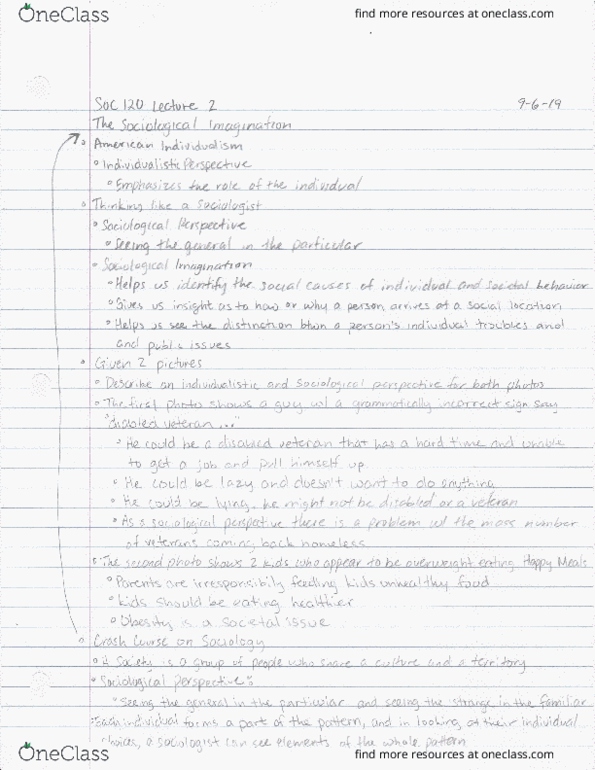 OneClass
find more resources at oneclass.com
SOC 120 Lecture 2 9-6-19
The Sociological Imagination
American Individualism
Individualistic Perspective
Emphasizes the role of the individual
Thinking like a Sociologist
Sociological Perspective
Seeing the general in the particular
Sociological Imagination
Helps us identify the social causes of individual and societal behavior
Gives us insight as to how or why a person arrives at a social location
Helps us see the distinction btwn a person's individual troubles and
and public issues
Given 2 pictures
Describe an individualistic and sociological perspective for both photos
The first photo shows a guy w/ a grammatically incorrect sign say
"disabled veteran..."
He could be a disabled veteran that has a hard time and unable
to get a job and pull himself up
He could be lazy and doesn't want to do anything
He could be lying, he might not be disabled or a veteran
As a sociological perspective there is a problem w/ the mass number
of veterans coming back homeless
The second photo shows 2 kids who appear to be overweight eating Happy Meals
Parents are irresponsibily feeding kids unhealthy food
kids should be eating healthier
Obesity is a societal issue
Crash Course on Sociology
Society is a group of people who share a culture and a territory
Sociological Perspective:
Seeing the general in the particular and seeing the strange in the familiar
Each individual forms a part of the pattern, and in looking at their individual
choices, a sociologist can see elements of the whole pattern
OneClass
find more resources at oneclass.com